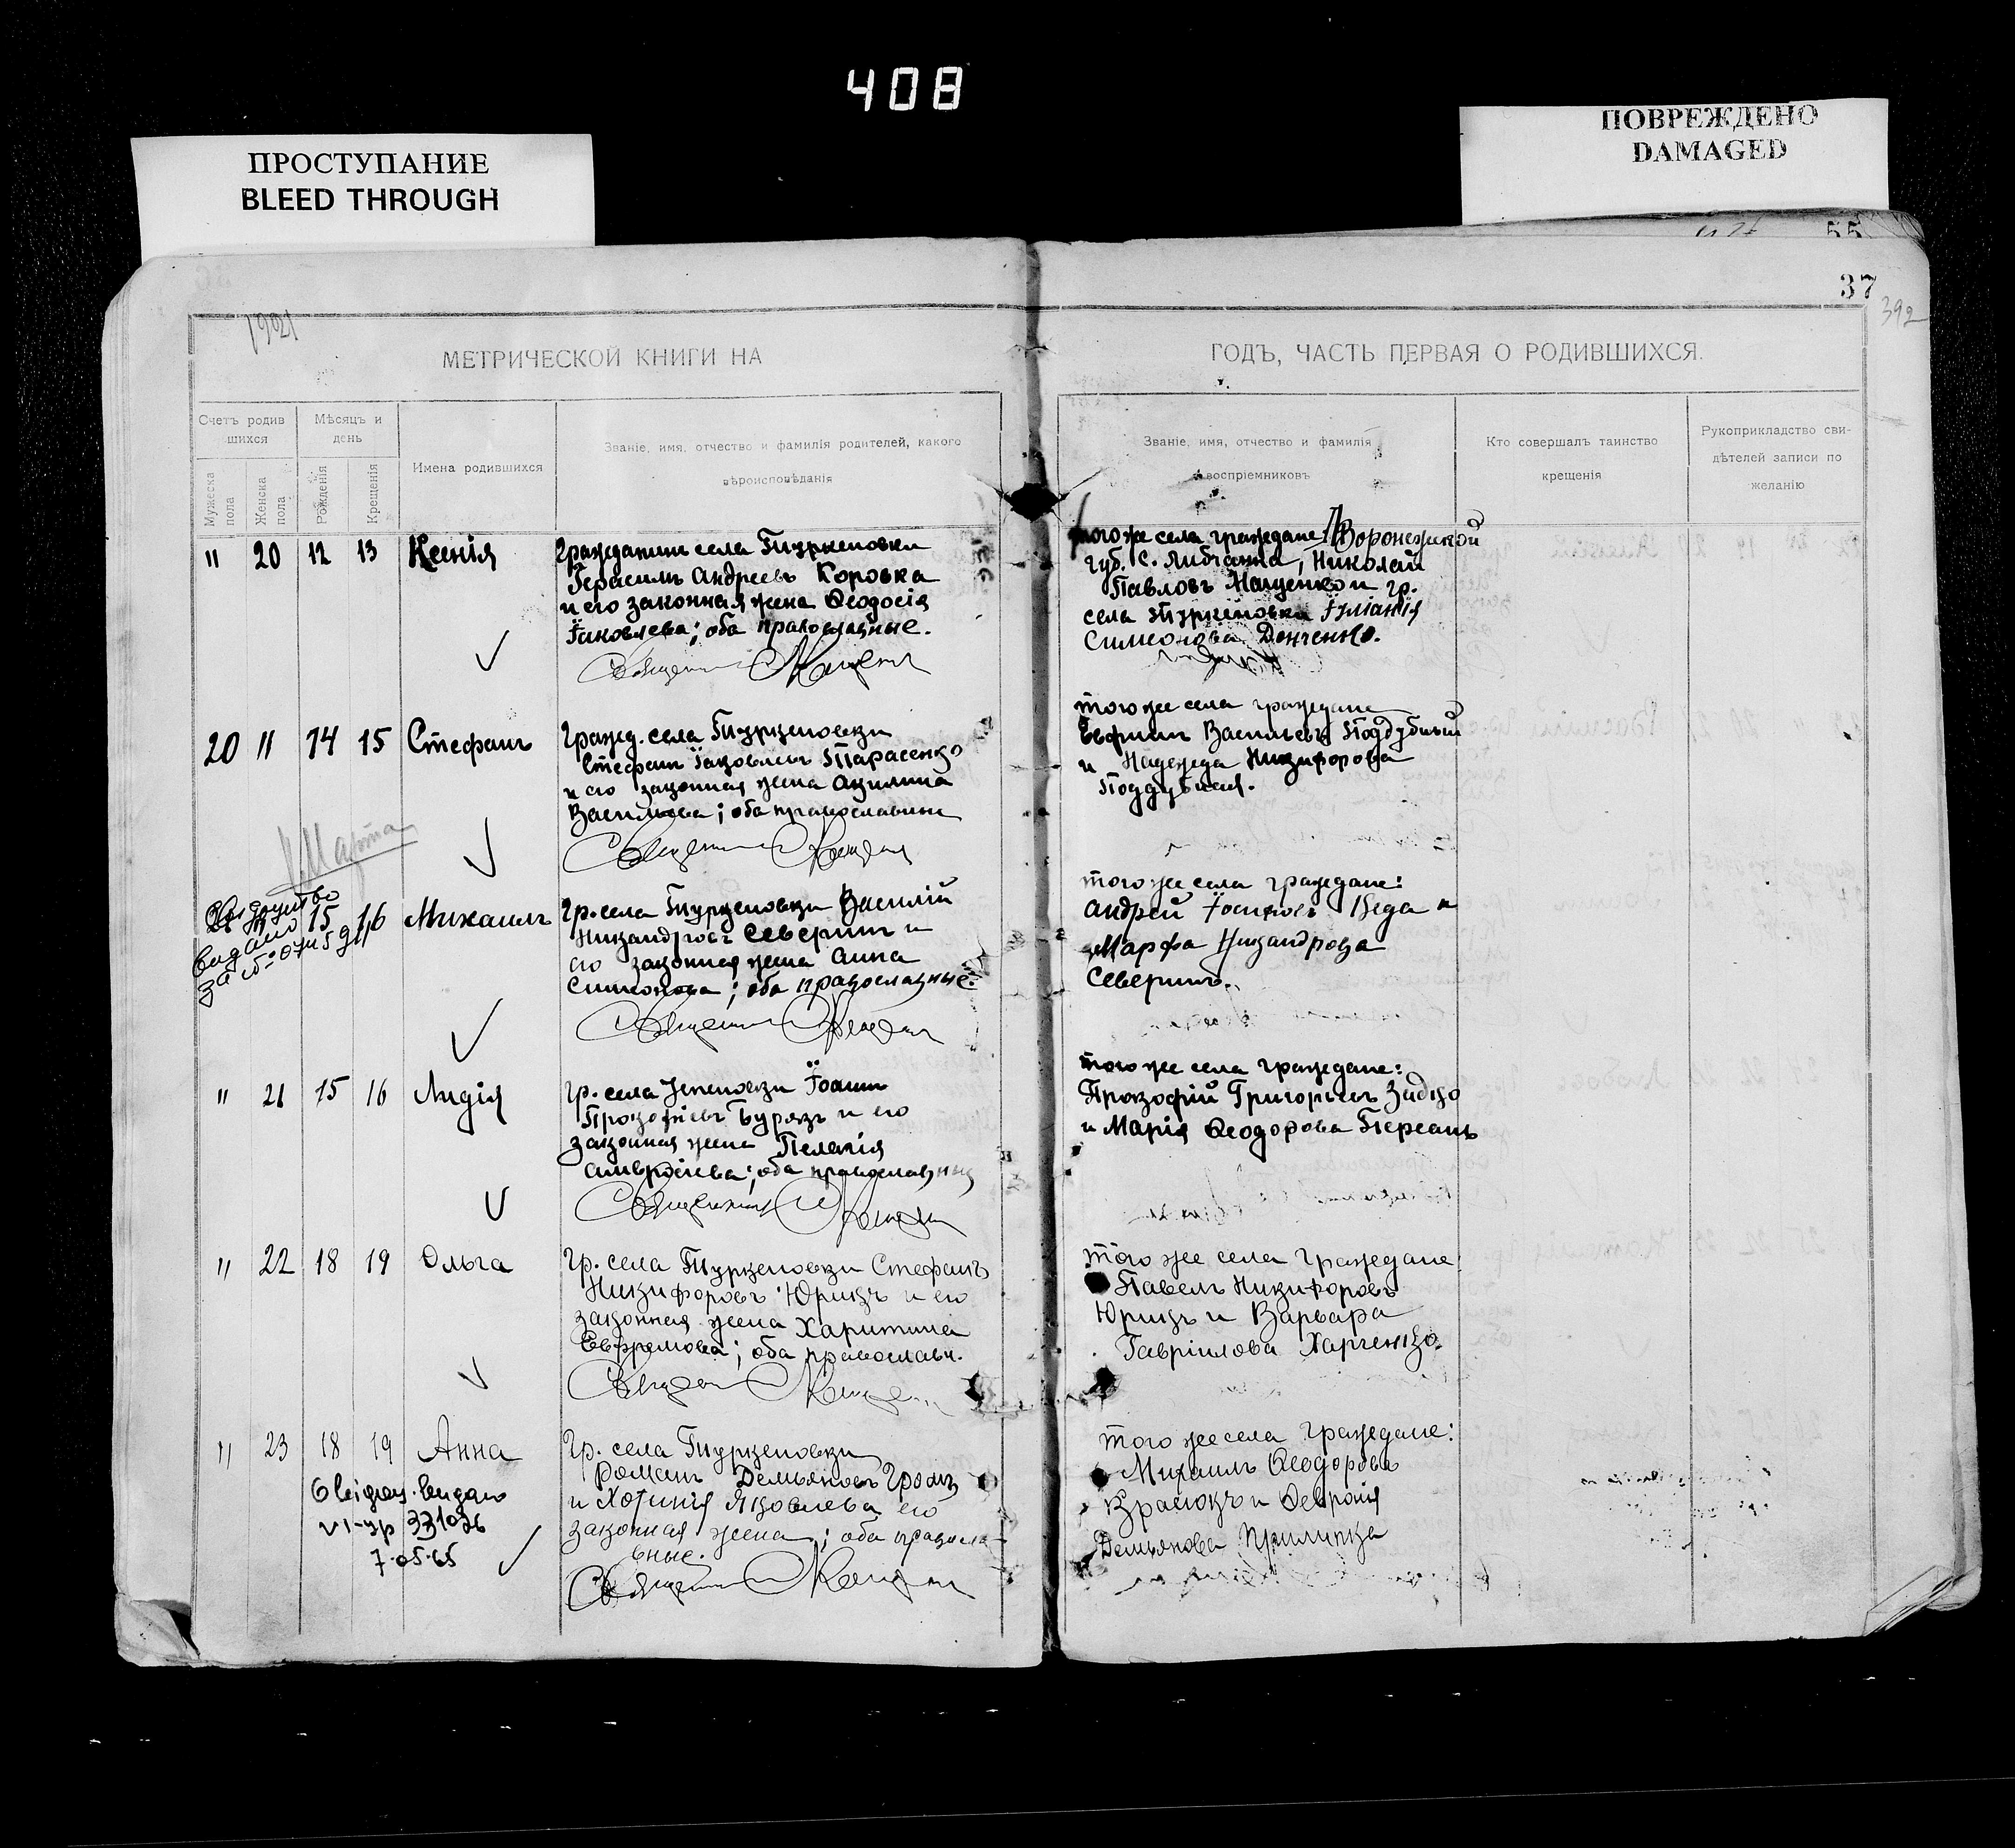 408
ПРОСТУПАНИЕ
BLEED THROUGH
ПОВРЕЖДЕНО
DAMAGED
55
37
392
1921
МЕТРИЧЕСКОЙ КНИГИ НА
ГОДЪ, ЧАСТЬ ПЕРВАЯ О РОДИВШИХСЯ.
Счетъ родив
шихся
Мѣсяцъ и
день
Мужеска
пола
Женска
пола
Рожденія
Крещенія
Имена родившихся
Званіе, имя, отчество и фамилія родителей, какого
вѣроисповѣданія
Званіе, имя, отчество и фамилія
воспріемниковъ
Кто совершалъ таинство
крещенія
Рукоприкладство сви-
дѣтелей записи по
желанію
" 20 12 13 Ксенія
Гражданинъ села Туркеновки
Герасимъ Андреевъ Коровка
и его законная жена Ѳеодосія
Іаковлева; оба православные.
Священник
того же села граждане Воронежской
губ. с. Николай
Павловъ Мащенко и гр.
села Туркеновка Іуліанія
Симеонова Донченко.
20 " 14 15 Стефанъ
Гражд. села Туркеновки
Стефанъ Іаковлевъ Тарасенко
и его законная жена Акилина
Васильева; оба православные
Священник
того же села граждане
Евфимъ Васильевъ Поддубный
и Надежда Никифорова
Поддубная.
Марта
Свидетство
видано
за №
15 16 Михаилъ
Гр. села Туркеновки Василій
Никандровъ Северинъ и
его законная жена Анна
Симеонова; оба православные.
Священник
того же села граждане:
Андрей Іосифовъ Беда и
Марфа Никандрова
Северинъ.
" 21 15 16 Лидія
Гр. села Іоаннъ
Прокофіевъ Бурякъ и его
законная жена Пелагія
Амвросіева; оба православныя
Священник
того же села граждане:
Прокофій Григорьевъ Задко
и Марія Ѳеодорова
" 22 18 19 Ольга
Гр. села Туркеновки Стефанъ
Никифоровъ Юрикъ и его
законная жена Харитина
Евфремова; оба православн.
Священник
того же села граждане
Павелъ Никифоровъ
Юрикъ и Варвара
Гавріилова Харченко.
" 23 18 19 Анна
Гр. села Туркеновки
Романъ Демьяновъ
и Хотинія Яковлева его
законная жена; оба правосла
вные.
Священник
того же села граждане:
Михаилъ Ѳеодоровъ
и Февронія
Демьянова Прилипка
видано
VI-УР 331026
7.05.65